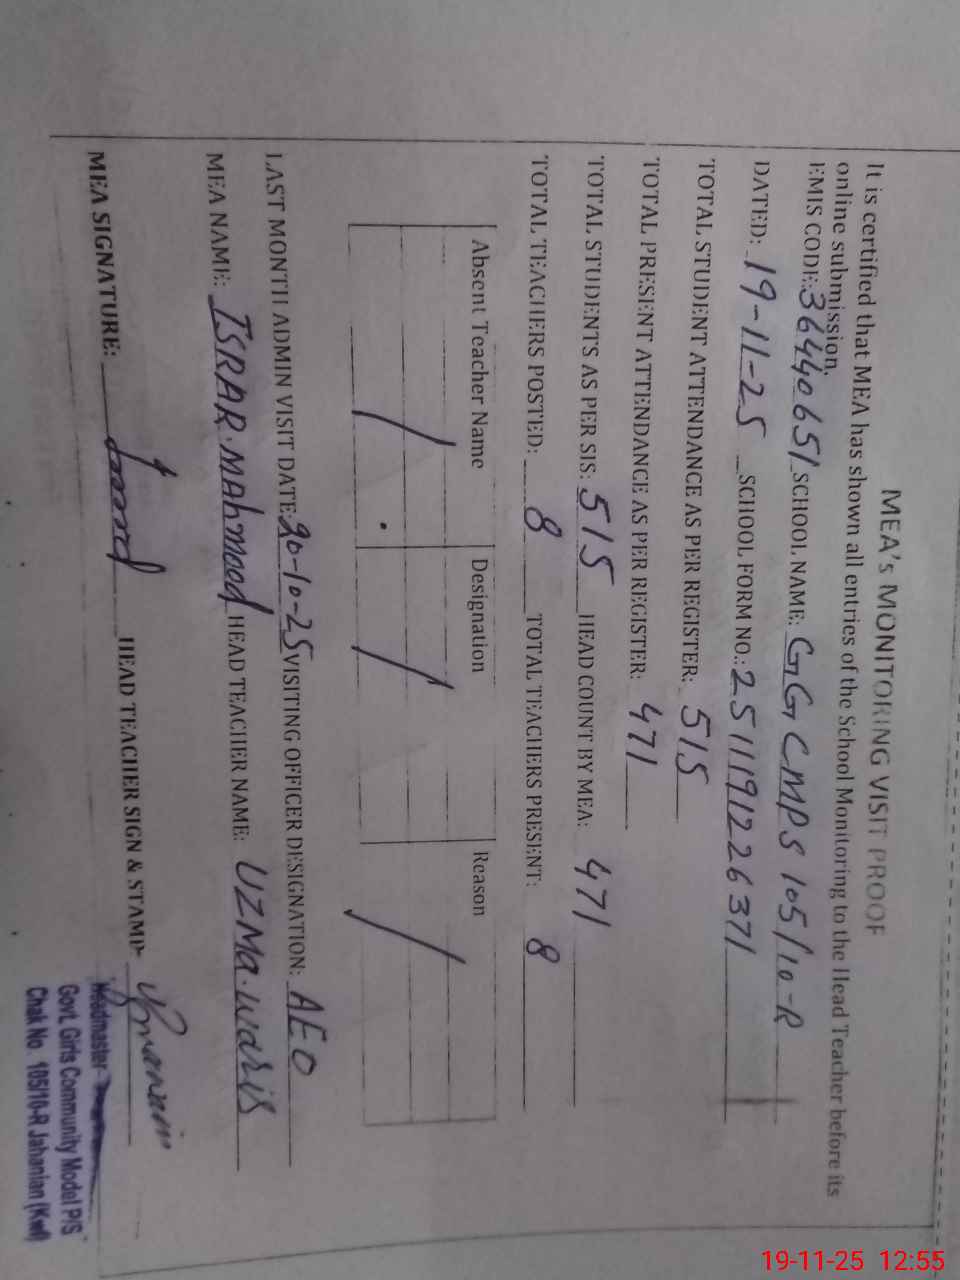 MEA's MONITORING VISIT PROOF
It is certified that MEA has shown all entries of the School Monitoring to the Head Teacher before its
online submission.
EMIS CODE: 36440651 SCHOOL NAME: GGCMPS 105/10-R
DATED: 19-11-25 SCHOOL FORM NO.: 2511191226371
TOTAL STUDENT ATTENDANCE AS PER REGISTER: 515
TOTAL PRESENT ATTENDANCE AS PER REGISTER: 471
TOTAL STUDENTS AS PER SIS: 515 HEAD COUNT BY MEA: 471
TOTAL TEACHERS POSTED: 8 TOTAL TEACHERS PRESENT: 8
Absent Teacher Name Designation Reason
LAST MONTH ADMIN VISIT DATE: 20-10-25 VISITING OFFICER DESIGNATION: AEO
MEA NAME: ISRAR.MAhmood HEAD TEACHER NAME: UZMa.waris
MEA SIGNATURE: HEAD TEACHER SIGN & STAMP
Headmaster
Govt. Girls Community Model P/S
Chak No. 105/10-R Jahanian (Kwl)
19-11-25 12:55